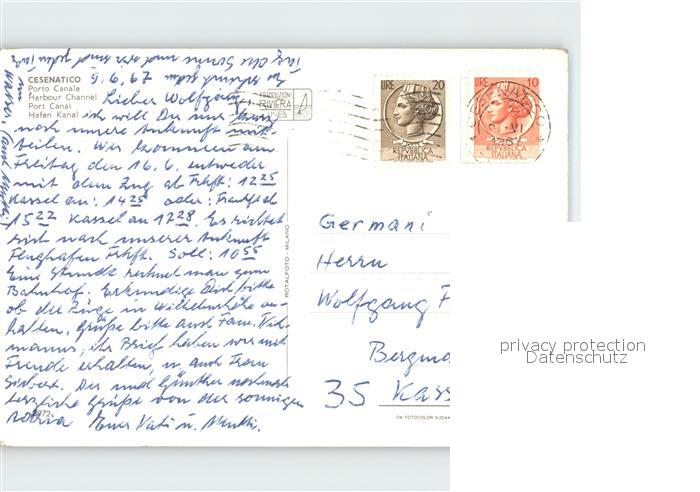 CESENATICO
Porto Canale
Harbour Channel
Port Canal
Hafen Kanal
9.6.67
Lieber Wolfgang
ich will Dir nur kurz
noch unsere Ankunft mit-
teilen. Wir kommen am
Freitag den 16.6. entweder
mit dem Zug ab Frkft: 12 25
Kassel an: 14 25 oder: Frankft ab
15 22 Kassel an 17 28. Es richtet
sich nach unserer Ankunft
Flughafen Frkft. Soll: 10 55
Eine Stunde rechnet man zum
Bahnhof. Erkundige Dich bitte
ob die Züge in Wilhelmshöhe an-
halten. Grüße bitte auch Fam.
ihr Brief haben wir mit
Freude erhalten, u. auch Frau
Siebert. Dir und Günther nochmals
herzliche Grüße von der sonnigen
Adria Euer Vati u. Mutti.
PRIVENZIONI
RIVIERA
LIRE 20
REPUBBLICA
ITALIANA
LIRE 10
REPUBBLICA
ITALIANA
CESENATICO
VI
ROTALFOTO - MILANO
Germani
Herrn
Wolfgang F
Bergma
35 Kass
DA FOTOCOLOR KODAK
privacy protection
Datenschutz